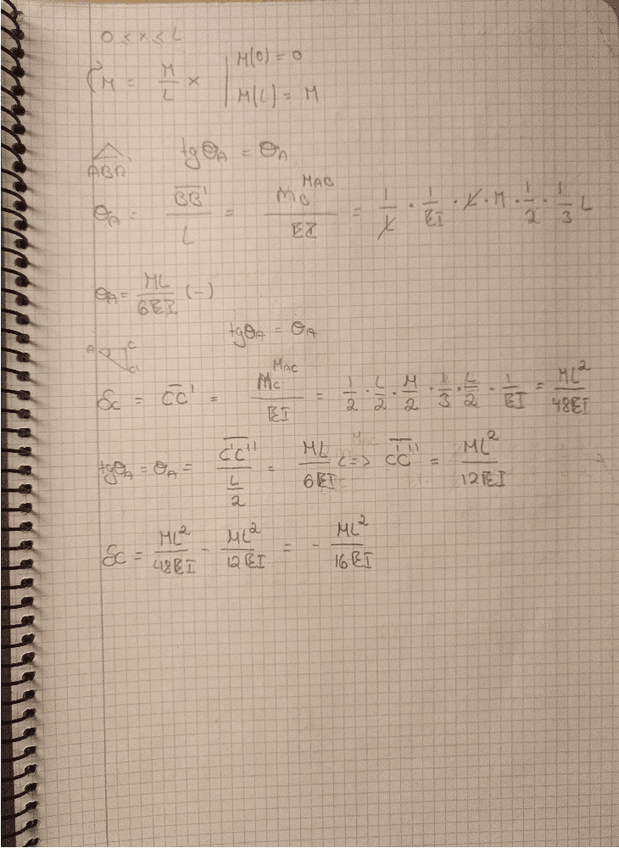 0 ≤ x ≤ L
M = M/L x | M(0) = 0
M(L) = M
ABA' tgΘA = ΘA
ΘA = BB'/L = MB^MAB/EI = 1/L · 1/EI · L · M · 1/2 · 1/3 L
ΘA = ML/6EI (-)
tgΘA = ΘA
A C
δC = CC' = MC^MAC/EI = 1/2 · L/2 · M/2 · 1/3 · L/2 · 1/EI = ML²/48EI
tgΘA = ΘA = C'C''/(L/2) = ML/6EI <=> C'C'' = ML²/12EI
δC = ML²/48EI - ML²/12EI = - ML²/16EI